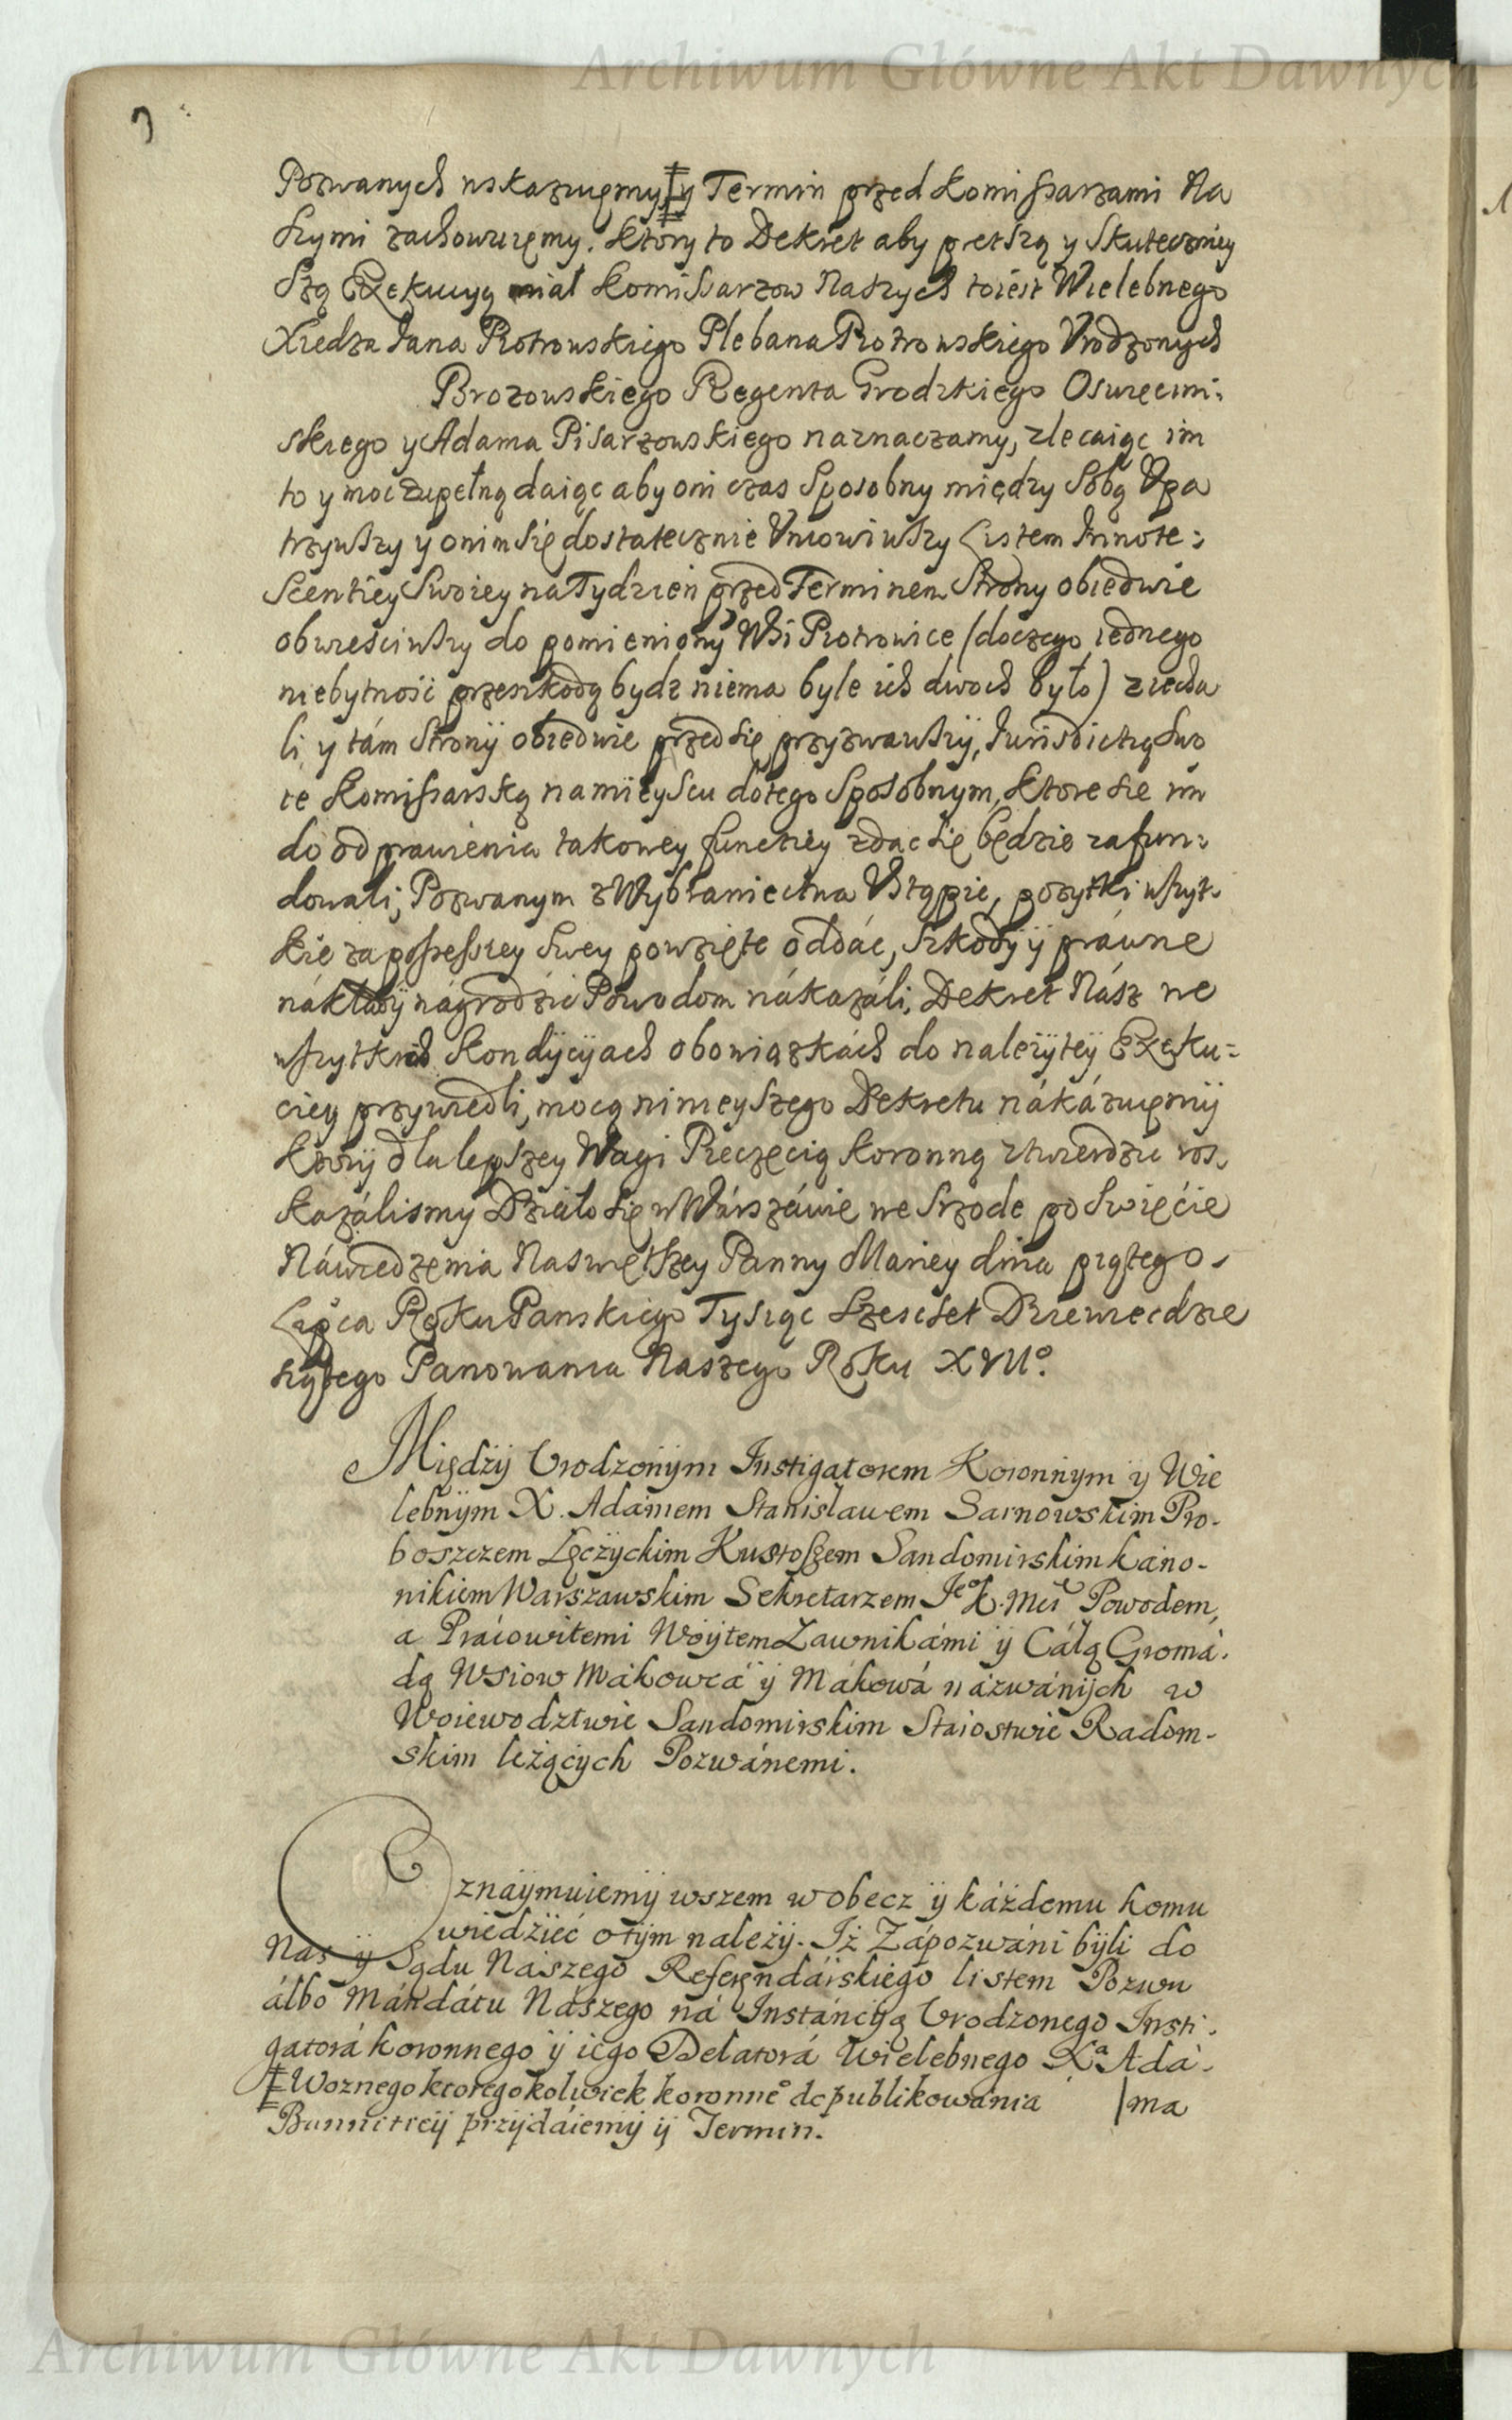 Archiwum Główne Akt Dawnych
Pozwanych wskazuięmy ‡ y Termin przed Komissarzami Na
szymi zachowuięmy. Ktory to Dekret aby pretszą y Skuteczniey
szą Exekucyą miał Komissarzow Naszych toiest Wielebnego
Xiedza Jana Piotrowskiego Plebana Piotrowskiego Vrodzonych
Brozowskiego Regenta Grodzkiego Oswięcim:
skiego y Adama Pisarzowskiego naznaczamy, zlecaiąc im
to y moc zupełną daiąc aby oni czas Sposobny między Sobą Vpa
trzywszy y onim się dostatecznie Vmowiwszy Listem Innote:
Scentiey Swoiey na Tydzien przed Terminem Strony obiedwie
obwieściwszy do pomieniony Wsi Piotrowice (doczego iednego
niebytność przeszkodą bydz niema byle ich dwoch było) ziecha
li y tám Strony obiedwie przed się przyzwawszÿ, Jurisdictią Swo
ie Komissarską namieyscu dotego Sposobnym, ktore sie im
do odprawienia takowey functiey zdac się będzie zafun:
dowali, Pozwanym z Wybraniectwa Vstąpic, pozytki wszyt:
kie za possessiey Swey powzięte oddác, szkody ÿ práwne
nákłady nágrodzic Powodom nákazáli, Dekret Nász we
wszytkich Kondÿcÿach obowiązkách do należÿteÿ Exeku=
cieÿ przywiedli, mocą ninieyszego Dekretu nákázuięmÿ
Ktorÿ dla lepszey Wagi Pieczęcią Koronną ztwierdzic ros,
kazálismy Działo się w Wárszáwie we Srzode po Swięćie
Náwiedzęnia Naswiętszey Panny Mariey dnia piątego
Lipca Roku Panskiego Tysiąc Szescset Dziewiecdzie
siątego Panowania Naszego Roku XVII°.
Międzÿ Vrodzonÿm Instigatorem Koronnÿm ÿ Wie
lebnÿm X. Adámem Stanisławem Sarnowskim Pro-
boszczem Łęczÿckim Kustoszem Sandomirskim Káno-
nikiem Warszawskim Sekretarzem Jeo K. Mci Powodem,
a Práiowitemi Woÿtem Ławnikámi ÿ Cáłą Gromá.
dą Wsiow Mákowca ÿ Mákowá názwánÿch w
Woiewodztwie Sandomirskim Starostwie Radom-
skim leżącÿch Pozwánemi.
Oznáÿmuiemÿ wszem wobecz ÿ káżdemu komu
wiedzieć otÿm należÿ. Iż Zápozwáni bÿli do
Nas ÿ Sądu Nászego Referendárskiego listem Pozwu
álbo Mándátu Nászego ná Instáncÿą Vrodzonego Insti.
gatorá koronnego ÿ iego Delatorá Wielebnego Xa Adá-
ma
‡ Woznego ktoregokolwiek koronneo do publikowánia
Bannitieÿ przÿdáiemÿ ÿ Termin.
Archiwum Główne Akt Dawnych